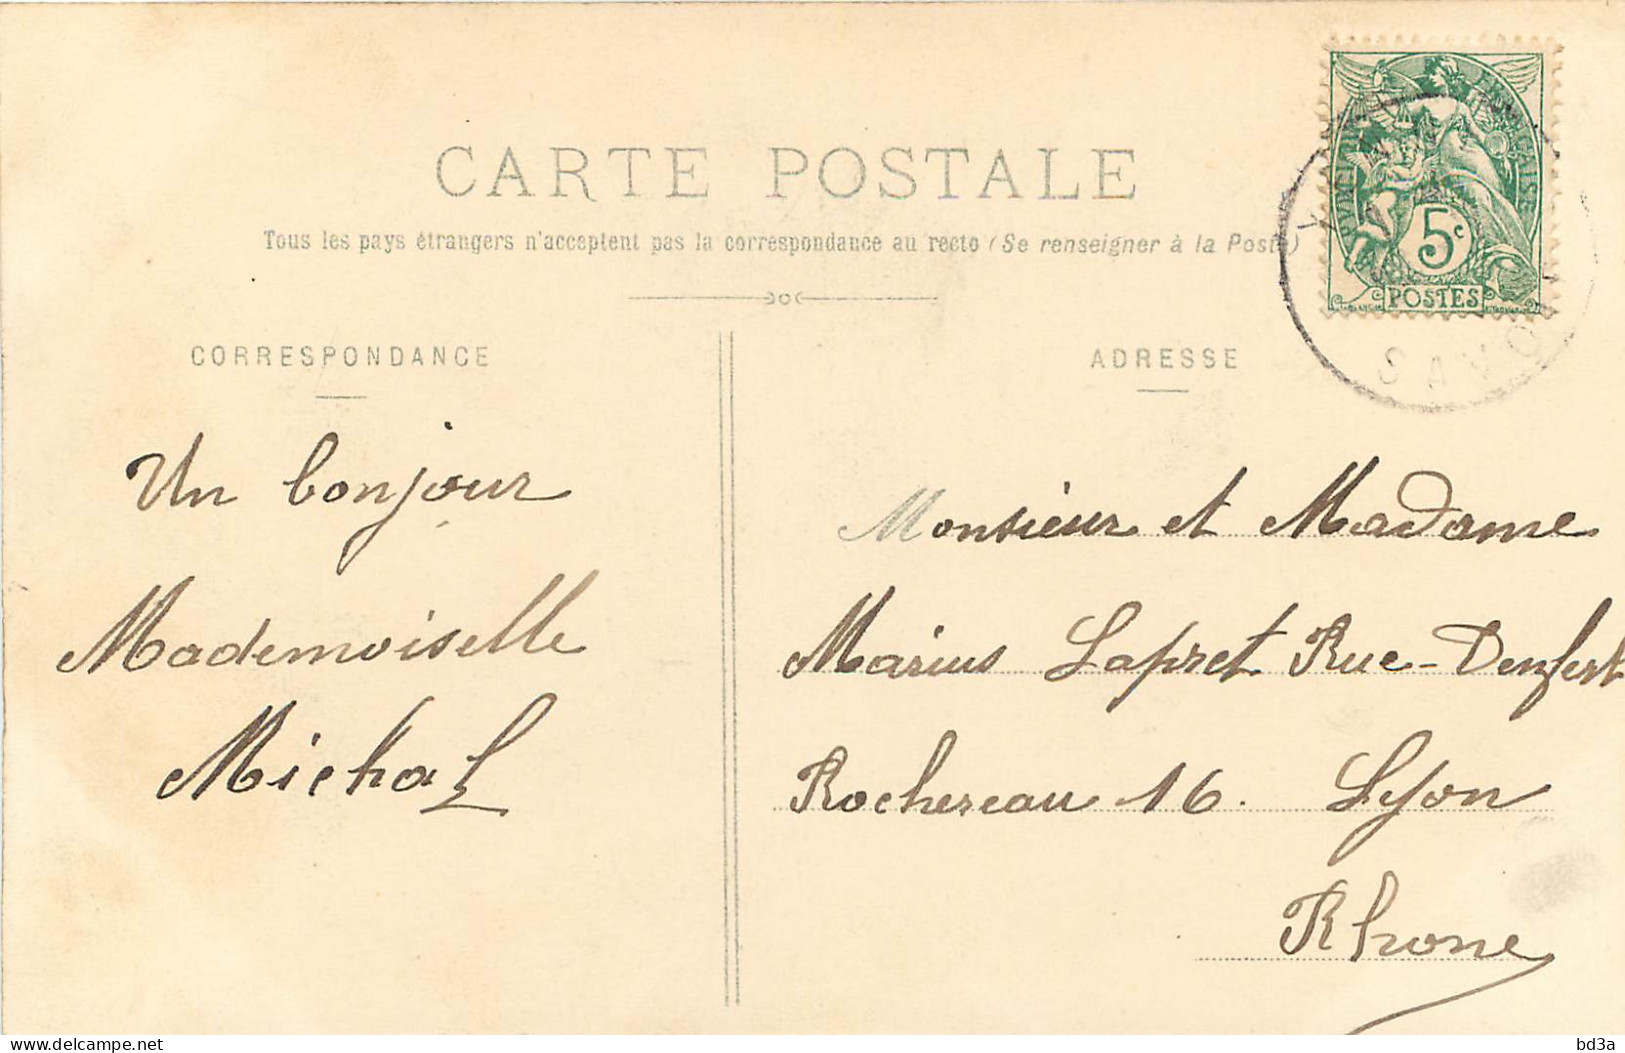 CARTE POSTALE
Tous les pays étrangers n'acceptent pas la correspondance au recto (Se renseigner à la Poste)
CORRESPONDANCE
Un bonjour
Mademoiselle
Michal
ADRESSE
Monsieur et Madame
Marius Lapret Rue-Denfert
Rochereau 16. Lyon
Rhone
5c
POSTES
SAVOI
delcampe.net
bd3a